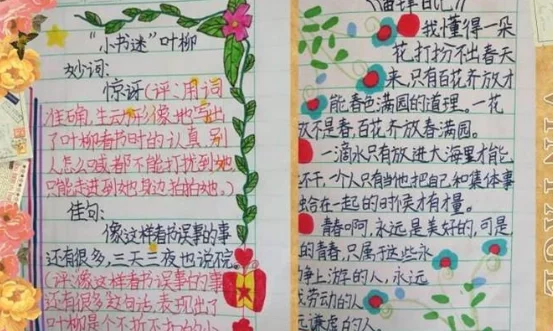 “小书迷”叶柳
妙词:
惊讶(评:用词
准确,生动形像地写出
了叶柳看书时的认真,别
人怎么喊都不能打扰到她,
只能走进到她身边拍拍她。)
佳句:
像这样看书误事的事
还有很多,三天三夜也说不完。
(评:像这样看书误事的事
还有很多这句话,表现出了
《雷锋日记》
我懂得一朵
花,打扮不出春天
来,只有百花齐放才
能春色满园的道理。一花
放不是春,百花齐放春满园。
一滴水只有放进大海里才能
不干,一个人只有当他把自己和集体事
在一起的时候才有力量。
青春啊,永远是美好的,可是
的青春,只属于这些永
争上游的人,永远
劳动的人
远谦虚的人